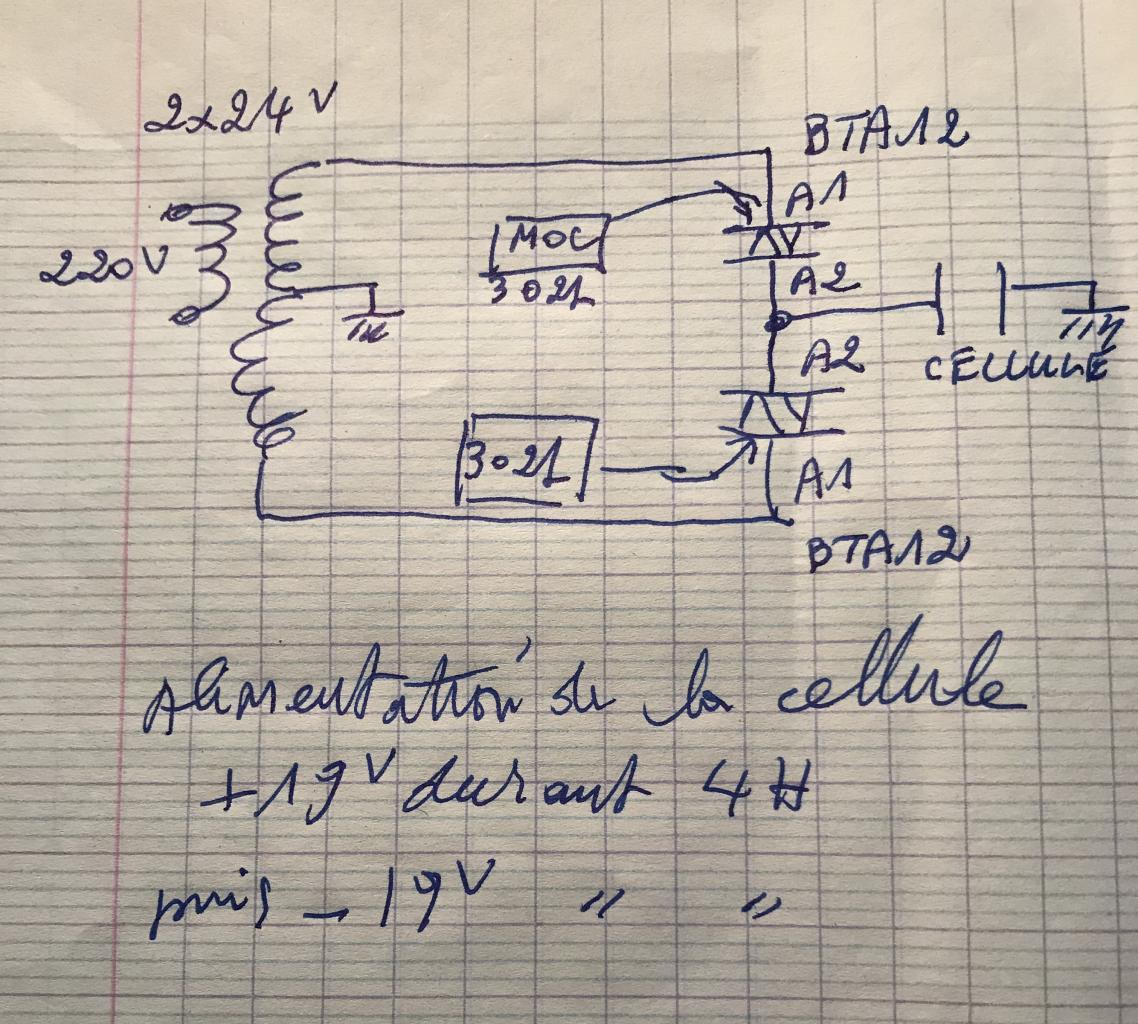 2x24V
BTA12
A1
220V
MOC
3021
A2
A2
CELLULE
3021
A1
BTA12
Alimentation de la cellule
+19V durant 4H
puis -19V " "